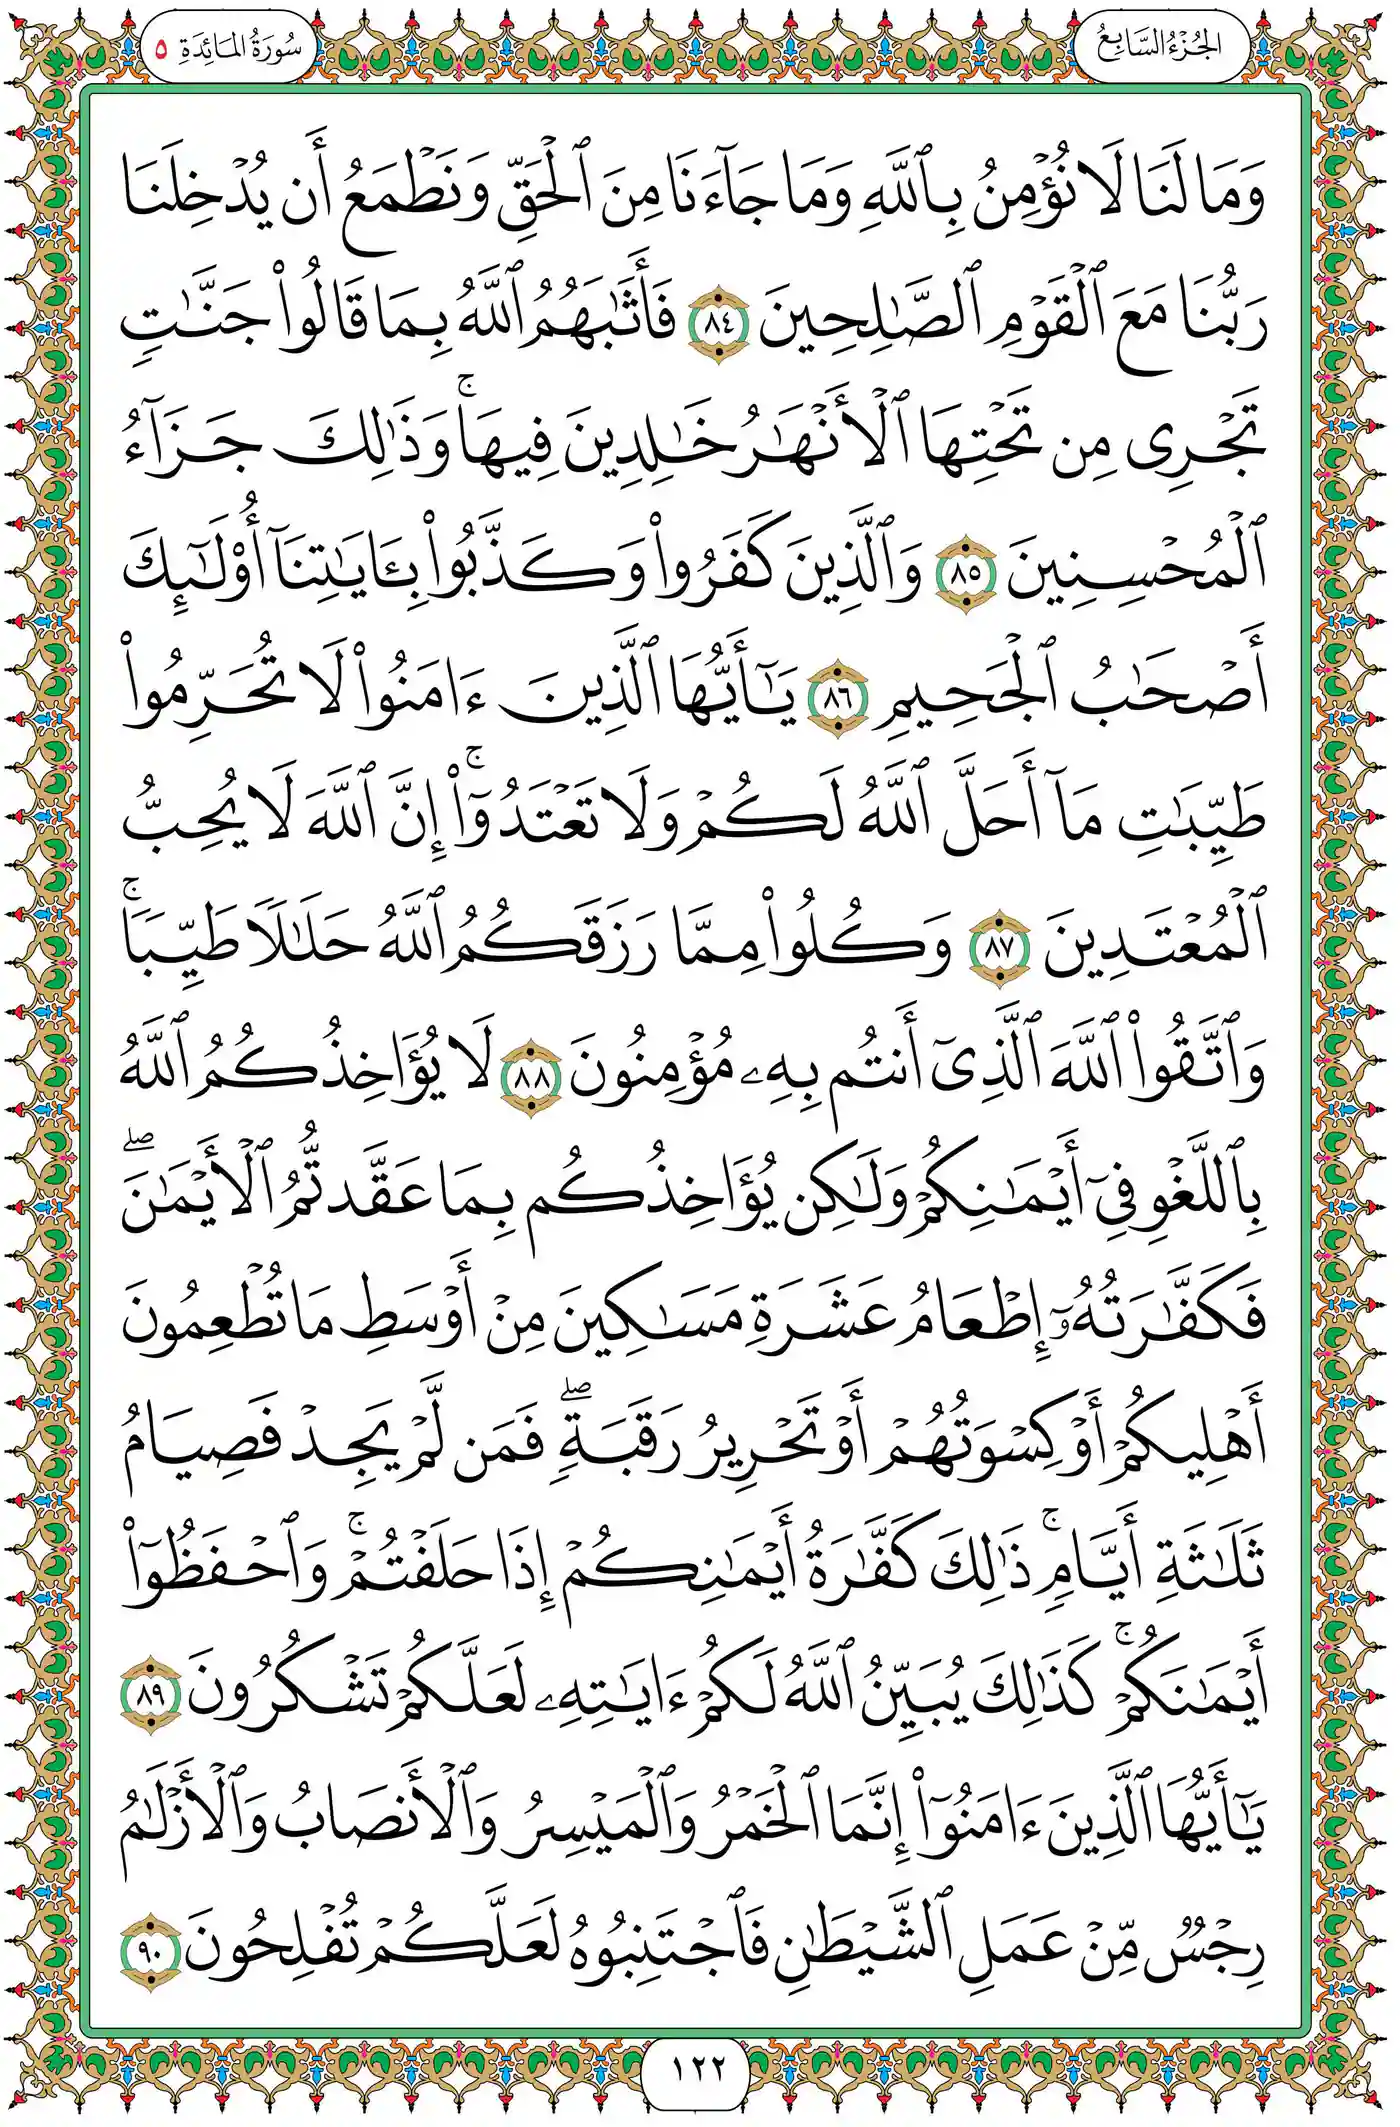 الجُزْءُ السَّابِعُ
سُورَةُ المَائِدَةِ ٥
وَمَا لَنَا لَا نُؤْمِنُ بِٱللَّهِ وَمَا جَآءَنَا مِنَ ٱلْحَقِّ وَنَطْمَعُ أَن يُدْخِلَنَا
رَبُّنَا مَعَ ٱلْقَوْمِ ٱلصَّٰلِحِينَ ٨٤ فَأَثَٰبَهُمُ ٱللَّهُ بِمَا قَالُوا۟ جَنَّٰتٍ
تَجْرِى مِن تَحْتِهَا ٱلْأَنْهَٰرُ خَٰلِدِينَ فِيهَا ۚ وَذَٰلِكَ جَزَآءُ
ٱلْمُحْسِنِينَ ٨٥ وَٱلَّذِينَ كَفَرُوا۟ وَكَذَّبُوا۟ بِـَٔايَٰتِنَآ أُو۟لَٰٓئِكَ
أَصْحَٰبُ ٱلْجَحِيمِ ٨٦ يَٰٓأَيُّهَا ٱلَّذِينَ ءَامَنُوا۟ لَا تُحَرِّمُوا۟
طَيِّبَٰتِ مَآ أَحَلَّ ٱللَّهُ لَكُمْ وَلَا تَعْتَدُوٓا۟ ۚ إِنَّ ٱللَّهَ لَا يُحِبُّ
ٱلْمُعْتَدِينَ ٨٧ وَكُلُوا۟ مِمَّا رَزَقَكُمُ ٱللَّهُ حَلَٰلًا طَيِّبًا ۚ
وَٱتَّقُوا۟ ٱللَّهَ ٱلَّذِىٓ أَنتُم بِهِۦ مُؤْمِنُونَ ٨٨ لَا يُؤَاخِذُكُمُ ٱللَّهُ
بِٱللَّغْوِ فِىٓ أَيْمَٰنِكُمْ وَلَٰكِن يُؤَاخِذُكُم بِمَا عَقَّدتُّمُ ٱلْأَيْمَٰنَ ۖ
فَكَفَّٰرَتُهُۥٓ إِطْعَامُ عَشَرَةِ مَسَٰكِينَ مِنْ أَوْسَطِ مَا تُطْعِمُونَ
أَهْلِيكُمْ أَوْ كِسْوَتُهُمْ أَوْ تَحْرِيرُ رَقَبَةٍ ۖ فَمَن لَّمْ يَجِدْ فَصِيَامُ
ثَلَٰثَةِ أَيَّامٍ ۚ ذَٰلِكَ كَفَّٰرَةُ أَيْمَٰنِكُمْ إِذَا حَلَفْتُمْ ۚ وَٱحْفَظُوٓا۟
أَيْمَٰنَكُمْ ۚ كَذَٰلِكَ يُبَيِّنُ ٱللَّهُ لَكُمْ ءَايَٰتِهِۦ لَعَلَّكُمْ تَشْكُرُونَ ٨٩
يَٰٓأَيُّهَا ٱلَّذِينَ ءَامَنُوٓا۟ إِنَّمَا ٱلْخَمْرُ وَٱلْمَيْسِرُ وَٱلْأَنصَابُ وَٱلْأَزْلَٰمُ
رِجْسٌ مِّنْ عَمَلِ ٱلشَّيْطَٰنِ فَٱجْتَنِبُوهُ لَعَلَّكُمْ تُفْلِحُونَ ٩٠
١٢٢